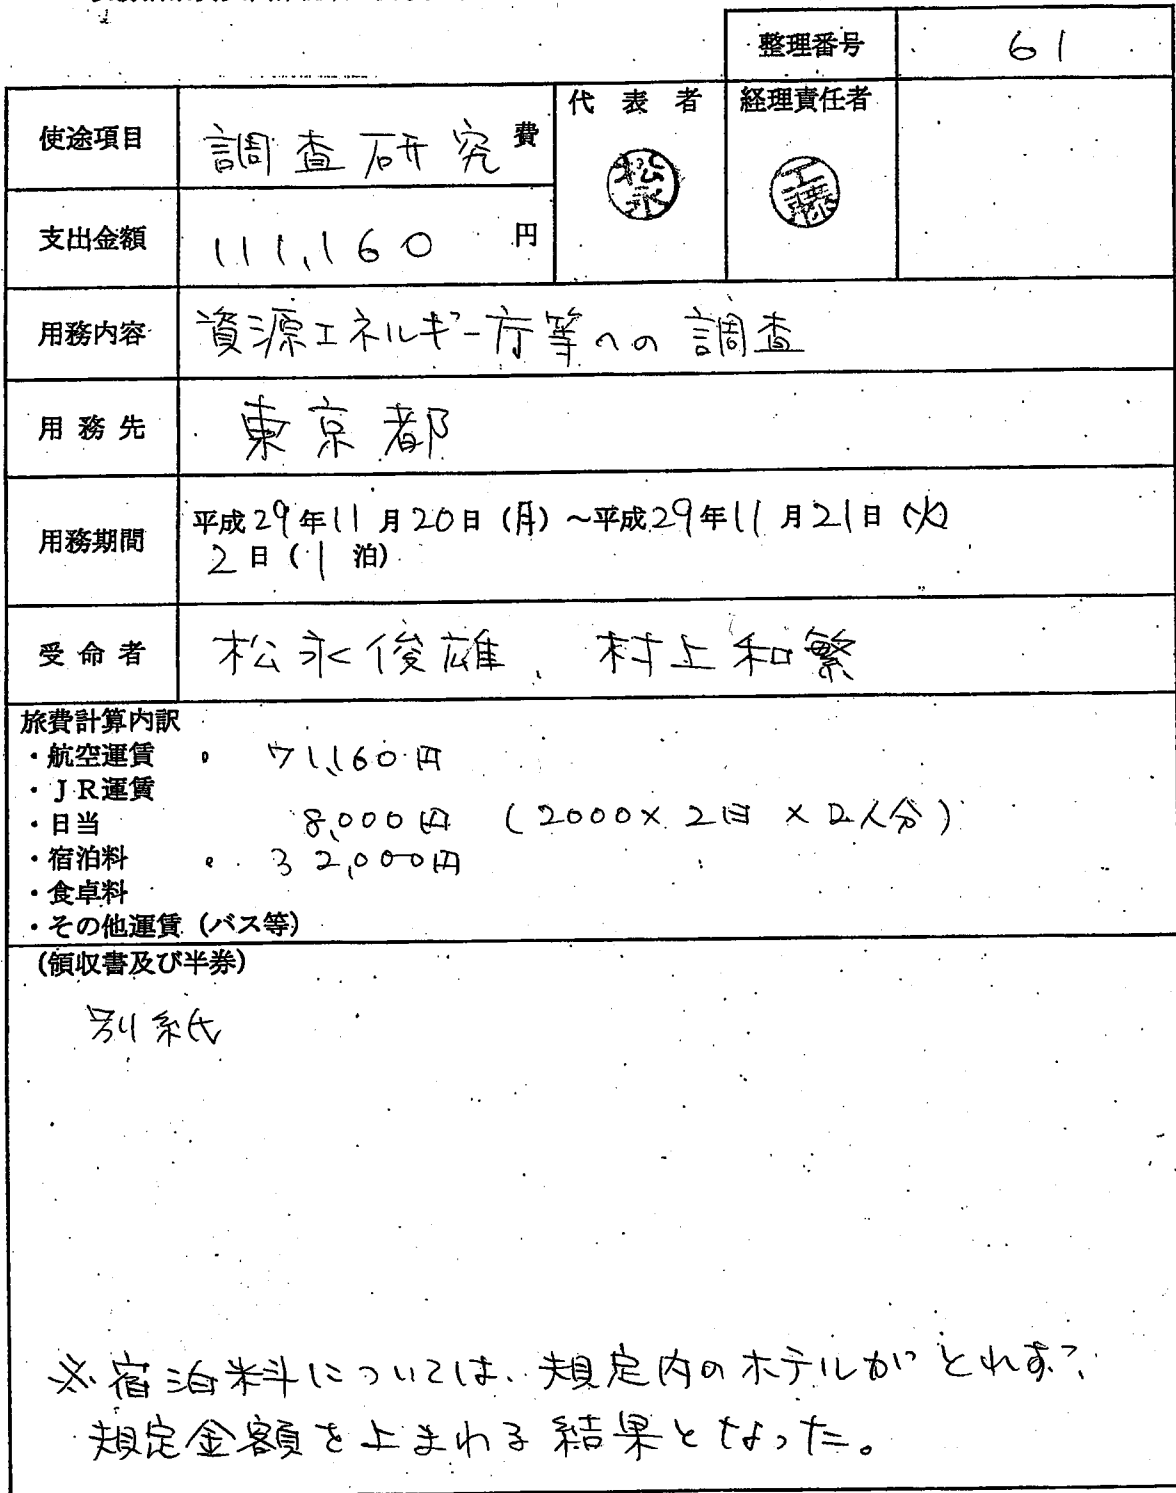 整理番号 61
使途項目 調査研究費
代表者 経理責任者
松永 工藤
支出金額 111,160 円
用務内容 資源エネルギー庁等への調査
用務先 東京都
用務期間 平成29年11月20日(月)~平成29年11月21日(火)
2日(1泊)
受命者 松永俊雄、村上和繁
旅費計算内訳
・航空運賃 71,160円
・JR運賃
・日当 8,000円 (2000×2日×2人分)
・宿泊料 32,000円
・食卓料
・その他運賃(バス等)
(領収書及び半券)
別紙
※宿泊料については、規定内のホテルがとれず、
規定金額を上まわる結果となった。